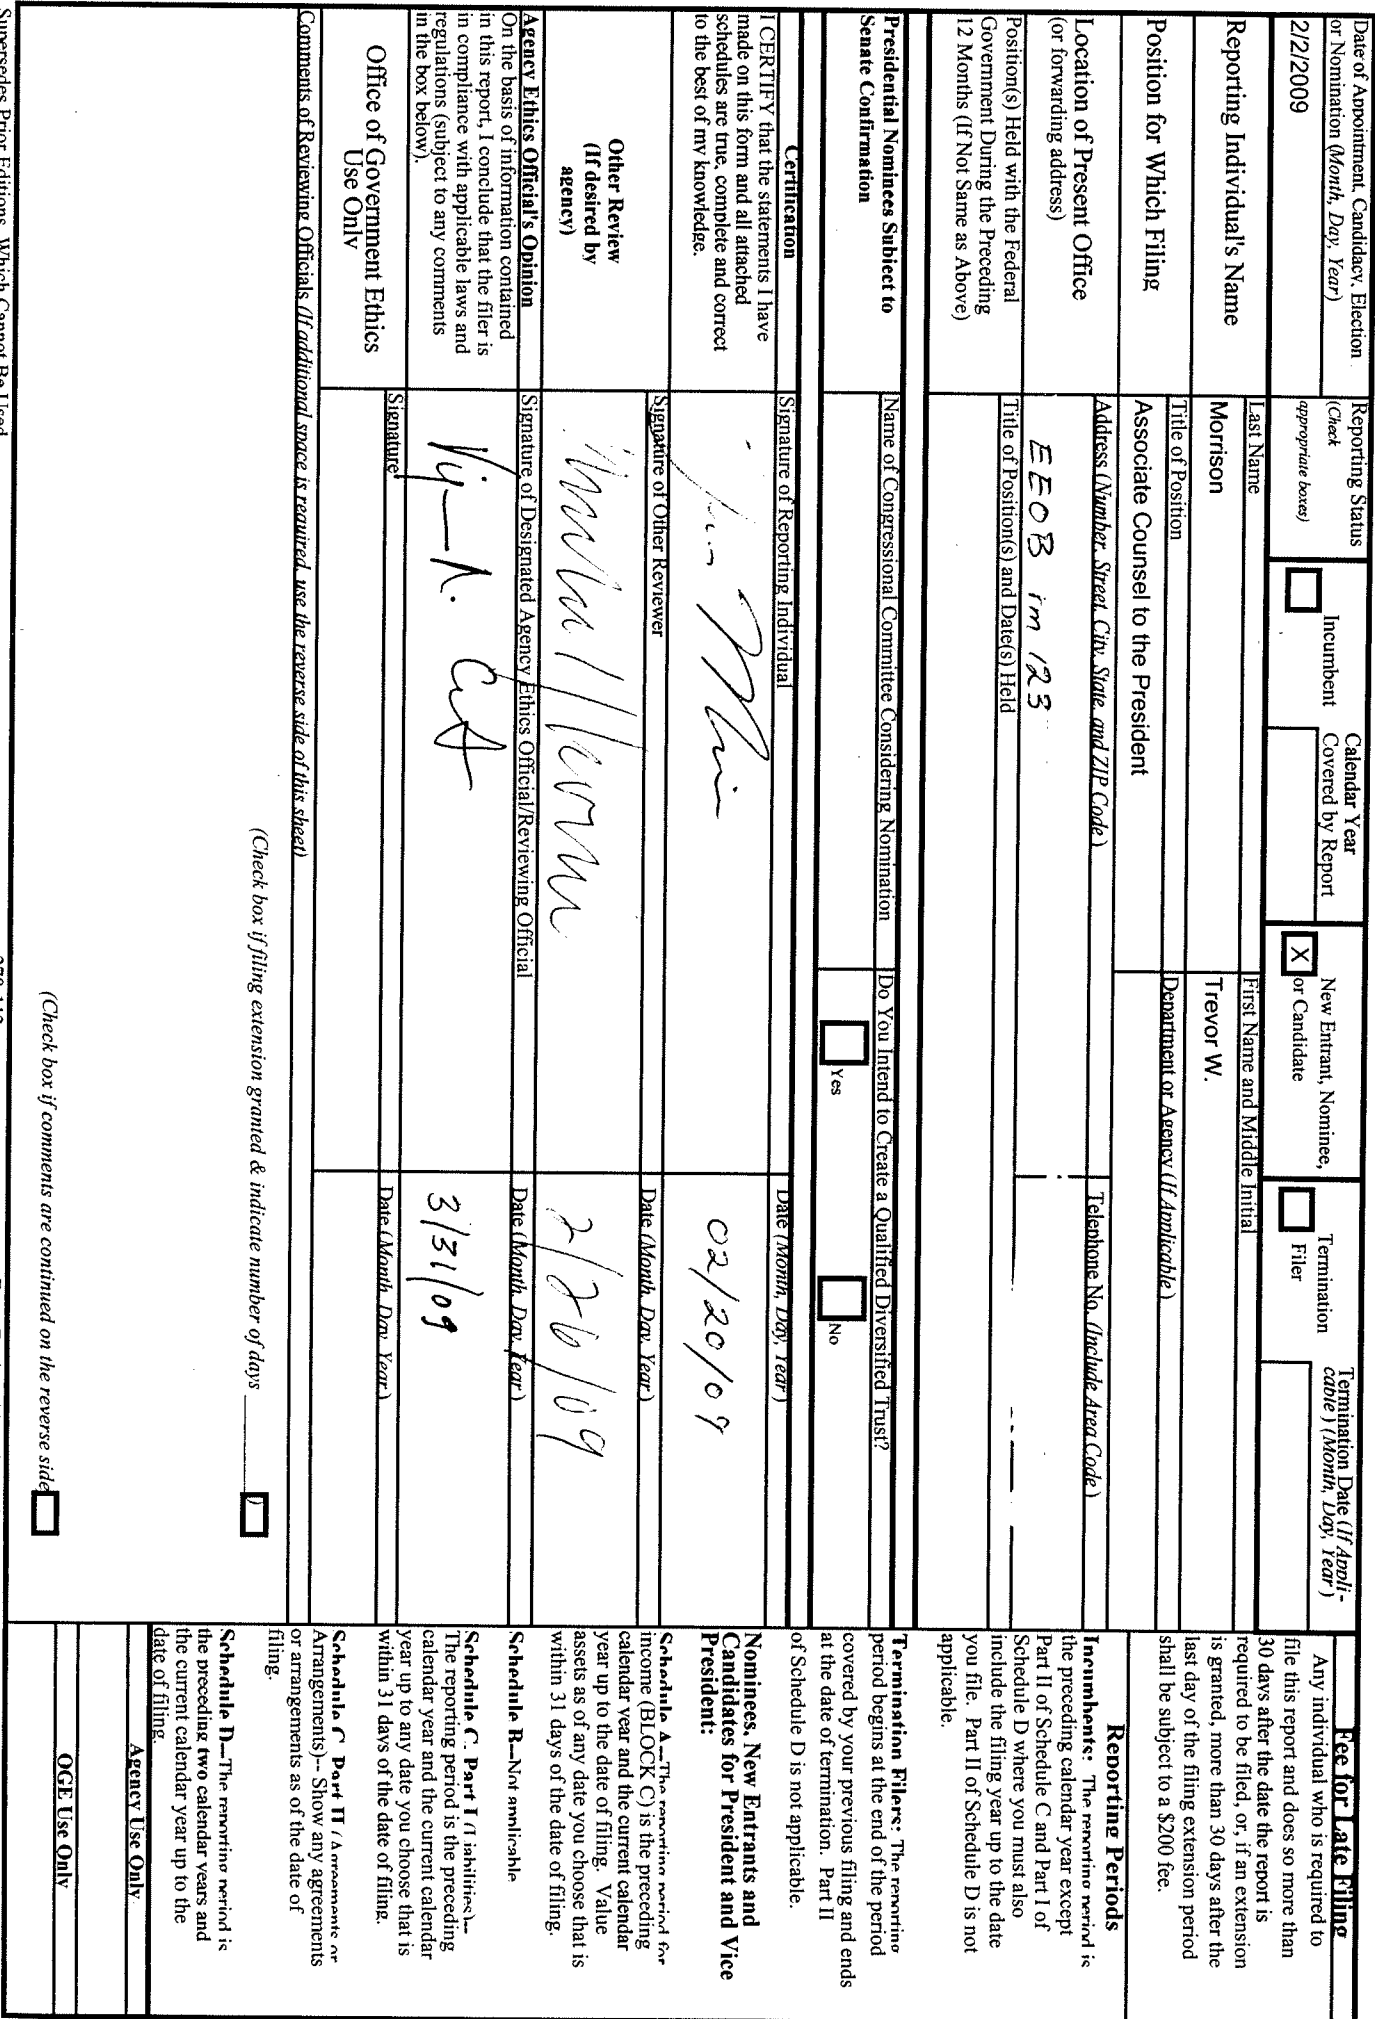 Date of Appointment, Candidacy, Election
or Nomination (Month, Day, Year)
2/2/2009
Reporting Status
(Check
appropriate boxes)
Incumbent
Calendar Year
Covered by Report
X
New Entrant, Nominee,
or Candidate
Termination
Filer
Termination Date (If Appli-
cable) (Month, Day, Year)
Reporting Individual's Name
Last Name
Morrison
First Name and Middle Initial
Trevor W.
Position for Which Filing
Title of Position
Associate Counsel to the President
Department or Agency (If Applicable)
Location of Present Office
(or forwarding address)
Address (Number, Street, City, State, and ZIP Code)
EEOB rm 123
Telephone No. (Include Area Code)
Position(s) Held with the Federal
Government During the Preceding
12 Months (If Not Same as Above)
Title of Position(s) and Date(s) Held
Presidential Nominees Subject to
Senate Confirmation
Name of Congressional Committee Considering Nomination
Do You Intend to Create a Qualified Diversified Trust?
Yes
No
Certification
I CERTIFY that the statements I have
made on this form and all attached
schedules are true, complete and correct
to the best of my knowledge.
Signature of Reporting Individual
Date (Month, Day, Year)
02/20/09
Other Review
(If desired by
agency)
Signature of Other Reviewer
Date (Month, Day, Year)
2/26/09
Agency Ethics Official's Opinion
On the basis of information contained
in this report, I conclude that the filer is
in compliance with applicable laws and
regulations (subject to any comments
in the box below).
Signature of Designated Agency Ethics Official/Reviewing Official
Date (Month, Day, Year)
3/31/09
Office of Government Ethics
Use Only
Signature
Date (Month, Day, Year)
Comments of Reviewing Officials (If additional space is required, use the reverse side of this sheet)
(Check box if filing extension granted & indicate number of days ______)
(Check box if comments are continued on the reverse side
Fee for Late Filing
Any individual who is required to
file this report and does so more than
30 days after the date the report is
required to be filed, or, if an extension
is granted, more than 30 days after the
last day of the filing extension period
shall be subject to a $200 fee.
Reporting Periods
Incumbents: The reporting period is
the preceding calendar year except
Part II of Schedule C and Part I of
Schedule D where you must also
include the filing year up to the date
you file. Part II of Schedule D is not
applicable.
Termination Filers: The reporting
period begins at the end of the period
covered by your previous filing and ends
at the date of termination. Part II
of Schedule D is not applicable.
Nominees, New Entrants and
Candidates for President and Vice
President:
Schedule A--The reporting period for
income (BLOCK C) is the preceding
calendar year and the current calendar
year up to the date of filing. Value
assets as of any date you choose that is
within 31 days of the date of filing.
Schedule B--Not applicable
Schedule C, Part I (Liabilities)--
The reporting period is the preceding
calendar year and the current calendar
year up to any date you choose that is
within 31 days of the date of filing.
Schedule C, Part II (Agreements or
Arrangements)-- Show any agreements
or arrangements as of the date of
filing.
Schedule D--The reporting period is
the preceding two calendar years and
the current calendar year up to the
date of filing.
Agency Use Only
OGE Use Only
Supersedes Prior Editions, Which Cannot Be Used